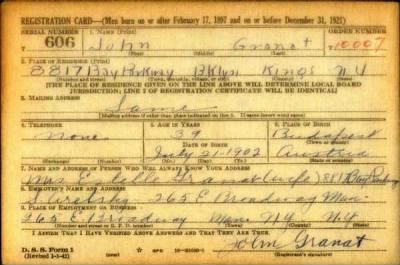 REGISTRATION CARD—(Men born on or after February 17, 1897 and on or before December 31, 1921)
SERIAL NUMBER 1. NAME (Print) ORDER NUMBER
606 John Granat 10007
2. PLACE OF RESIDENCE (Print)
8817 Bay Parkway Bklyn Kings N Y
[THE PLACE OF RESIDENCE GIVEN ON THE LINE ABOVE WILL DETERMINE LOCAL BOARD
JURISDICTION; LINE 2 OF REGISTRATION CERTIFICATE WILL BE IDENTICAL]
3. MAILING ADDRESS
Same
[Mailing address if other than place indicated on line 2. If same insert word same]
4. TELEPHONE 5. AGE IN YEARS 6. PLACE OF BIRTH
None 39 Budapest
DATE OF BIRTH (Town or county)
July 21-1902 Austria
(Exchange) (Number) (Mo.) (Day) (Yr.) (State or country)
7. NAME AND ADDRESS OF PERSON WHO WILL ALWAYS KNOW YOUR ADDRESS
Mrs Granat (wife) 8817 Bay Parkway
8. EMPLOYER'S NAME AND ADDRESS
265 E Broadway Man.
9. PLACE OF EMPLOYMENT OR BUSINESS
265 E Broadway Man NY N.Y
(Number and street or R. F. D. number) (Town) (County) (State)
I AFFIRM THAT I HAVE VERIFIED ABOVE ANSWERS AND THAT THEY ARE TRUE.
D. S. S. Form 1 John Granat
(Revised 1-1-42) (over)